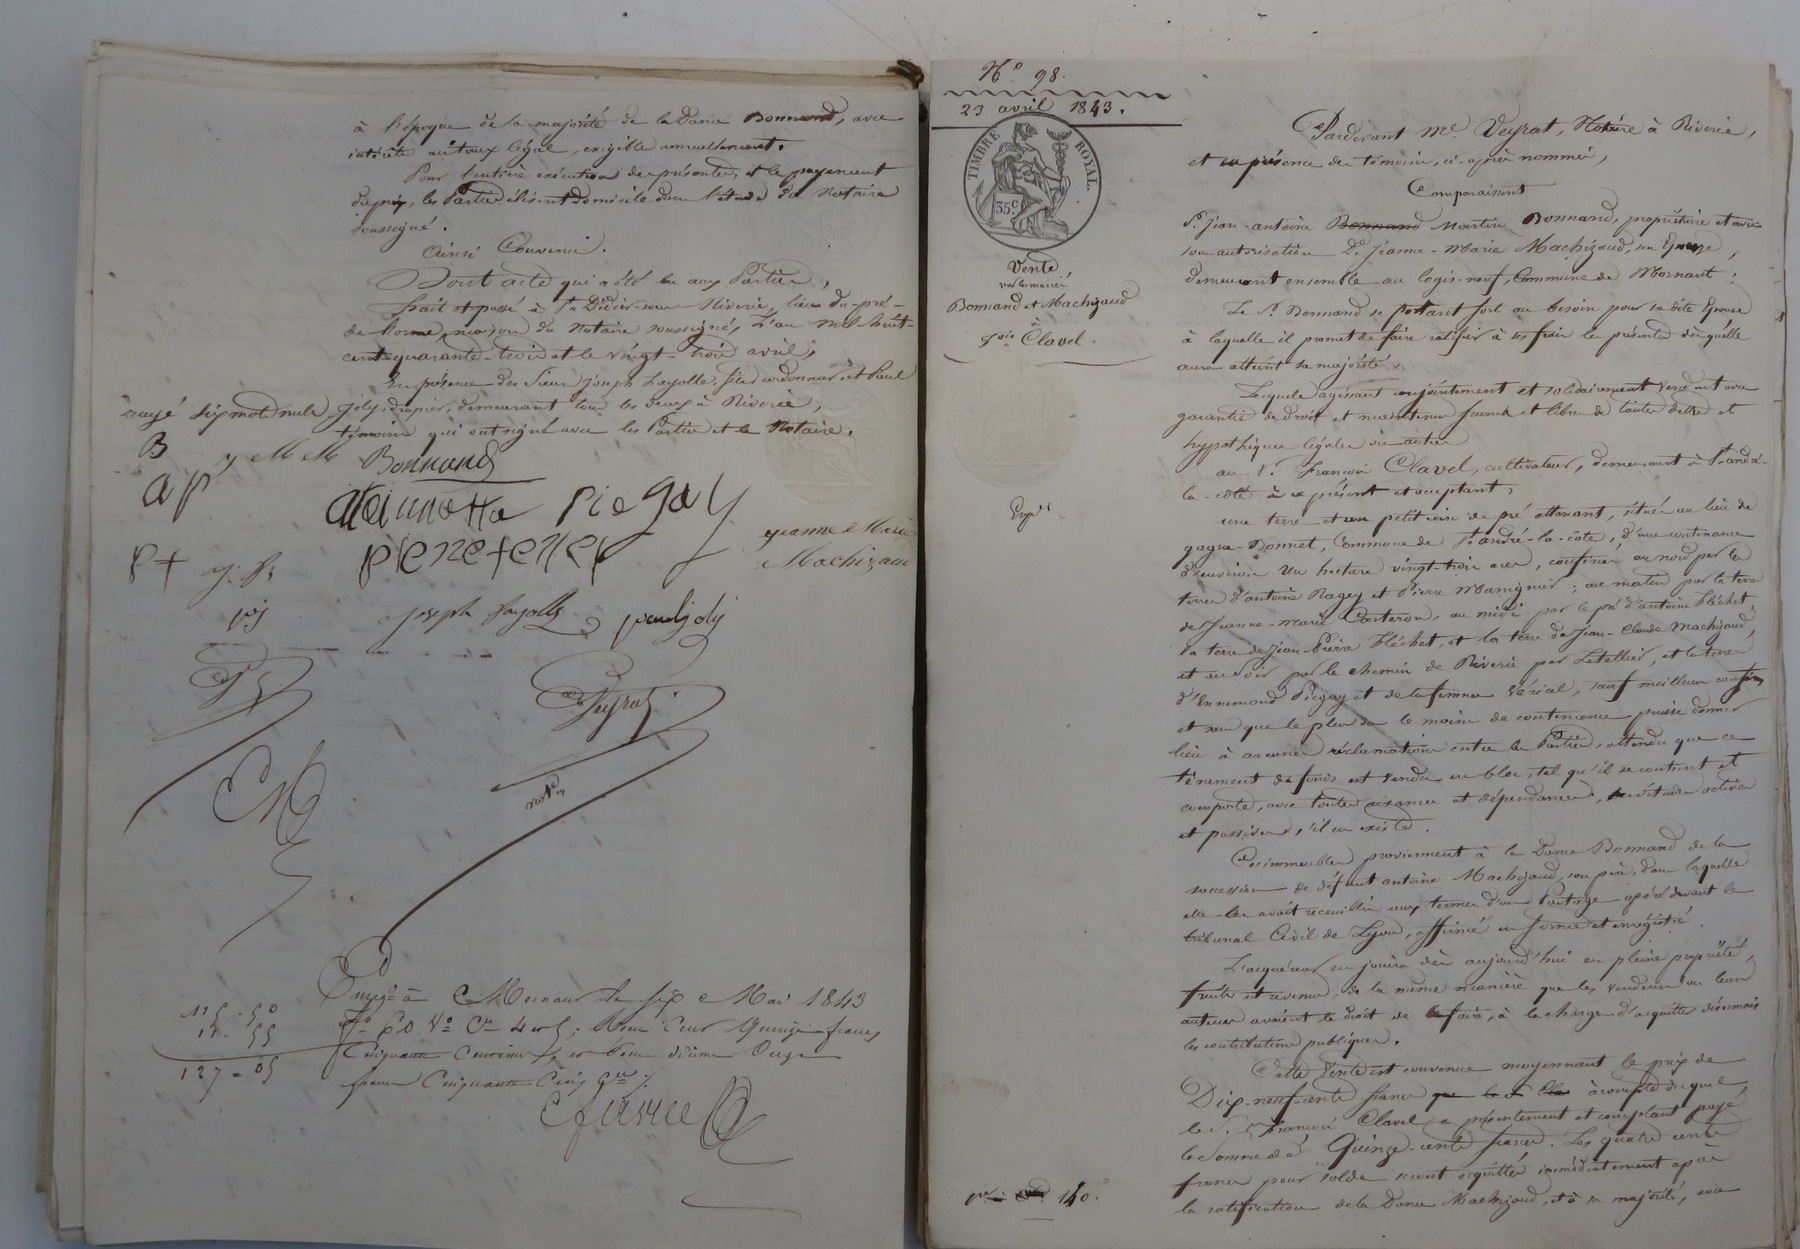 à l'époque de la majorité de la Dame Bonnand, avec
intérêts au taux légal, exigible annuellement.
Pour l'entière exécution des présentes, et le payement
du prix, les Parties élisent domicile dans l'étude du Notaire
soussigné.
Ainsi Convenu.
Dont acte qui a été lu aux Parties,
fait et passé à St Didier-sous-Riverie, lieu du-pré-
de lorme, maison du Notaire soussigné, L'an mil-huit-
cent-quarante-trois et le vingt-trois avril,
En présence des Sieurs Joseph Fayolle, fils cordonnier, et Paul
Joly, drapier, demeurant tous les deux à Riverie,
témoins qui ont signé avec les Parties et le Notaire.
rayé six mots nuls
B
j M M
Bonnand
a p
Piegay
jeanne Marie
Machizaud
p t
j. f.
joseph fayolle
paul joly
pj
Veyrat
notre
CM
Enreg. à Mornant le six Mai 1843
fo 60 Vo Cs 4 et 5; Reçu Cent Quinze francs
Cinquante Centimes, et pour dixième Onze
francs Cinquante Cinq Cmes
115 - 50
11 - 55
127 = 05
No 98.
23 avril 1843.
TIMBRE ROYAL.
35c
Vente
par les mariés
Bonnand et Machizaud
à
fois Clavel.
Exp
140.
Pardevant Me Veyrat, Notaire à Riverie,
et en présence des témoins, ci-après nommés,
Comparaissent
Sr Jean-antoine Bonnand Martin Bonnand, propriétaire et avec
son autorisation De Jeanne-Marie Machizaud, son Epouse,
demeurant ensemble au logis-neuf, Commune de Mornant;
Le Sr Bonnand se portant fort au besoin pour sa dite Epouse
à laquelle il promet de faire ratifier à ses frais les présentes dès qu'elle
aura atteint sa majorité.
Lesquels agissant conjointement et solidairement vendent avec
garantie de droit et maintenue franche et libre de toutes dettes et
hypothèques légales ou autres
au Sr François Clavel, cultivateur, demeurant à St andré-
la-côte à ce présent et acceptant,
une terre et un petit coin de pré attenant, situés au lieu de
gagne-Bonnet, Commune de St andré-la-côte, d'une contenance
d'environ un hectare vingt-trois ares, confinés au nord par les
terres d'antoine Ragey et Pierre Manignier; au matin par la terre
de Jeanne-Marie Carteron, au midi par le pré d'antoine Fléchet,
la terre de Jean-Pierre Fléchet, et la terre de Jean-Claude Machizaud,
et au soir par le chemin de Riverie par Letellier, et la terre
d'Ennemond Piegay et de la femme Vérial, sauf meilleurs confins
et sans que le plus ou le moins de contenance puisse donner
lieu à aucune réclamation entre les Parties, attendu que ce
ténement de fonds est vendu en bloc, tel qu'il se contient et
comporte, avec toutes aisances et dépendances, servitudes actives
et passives, s'il en existe.
Ces immeubles proviennent à la Dame Bonnand de la
succession de défunt antoine Machizaud, son père, dans laquelle
elle les avait recueillis aux termes d'un Partage opéré devant le
tribunal Civil de Lyon, affirmé en forme et enregistré.
L'acquéreur en jouira dès aujourd'hui en pleine propriété,
fruits et revenus, de la même manière que les vendeurs ou leurs
auteurs avaient le droit de le faire, à la charge d'acquitter désormais
les contributions publiques.
Cette Vente est convenue moyennant le prix de
Dix-neuf-cents francs que le Sr Cla à compte duquel
le Sr François Clavel a présentement et comptant payé
la Somme de Quinze-cents francs. Les quatre cents
francs pour solde seront acquittés immédiatement après
la ratification de la Dame Machizaud, et à sa majorité, avec